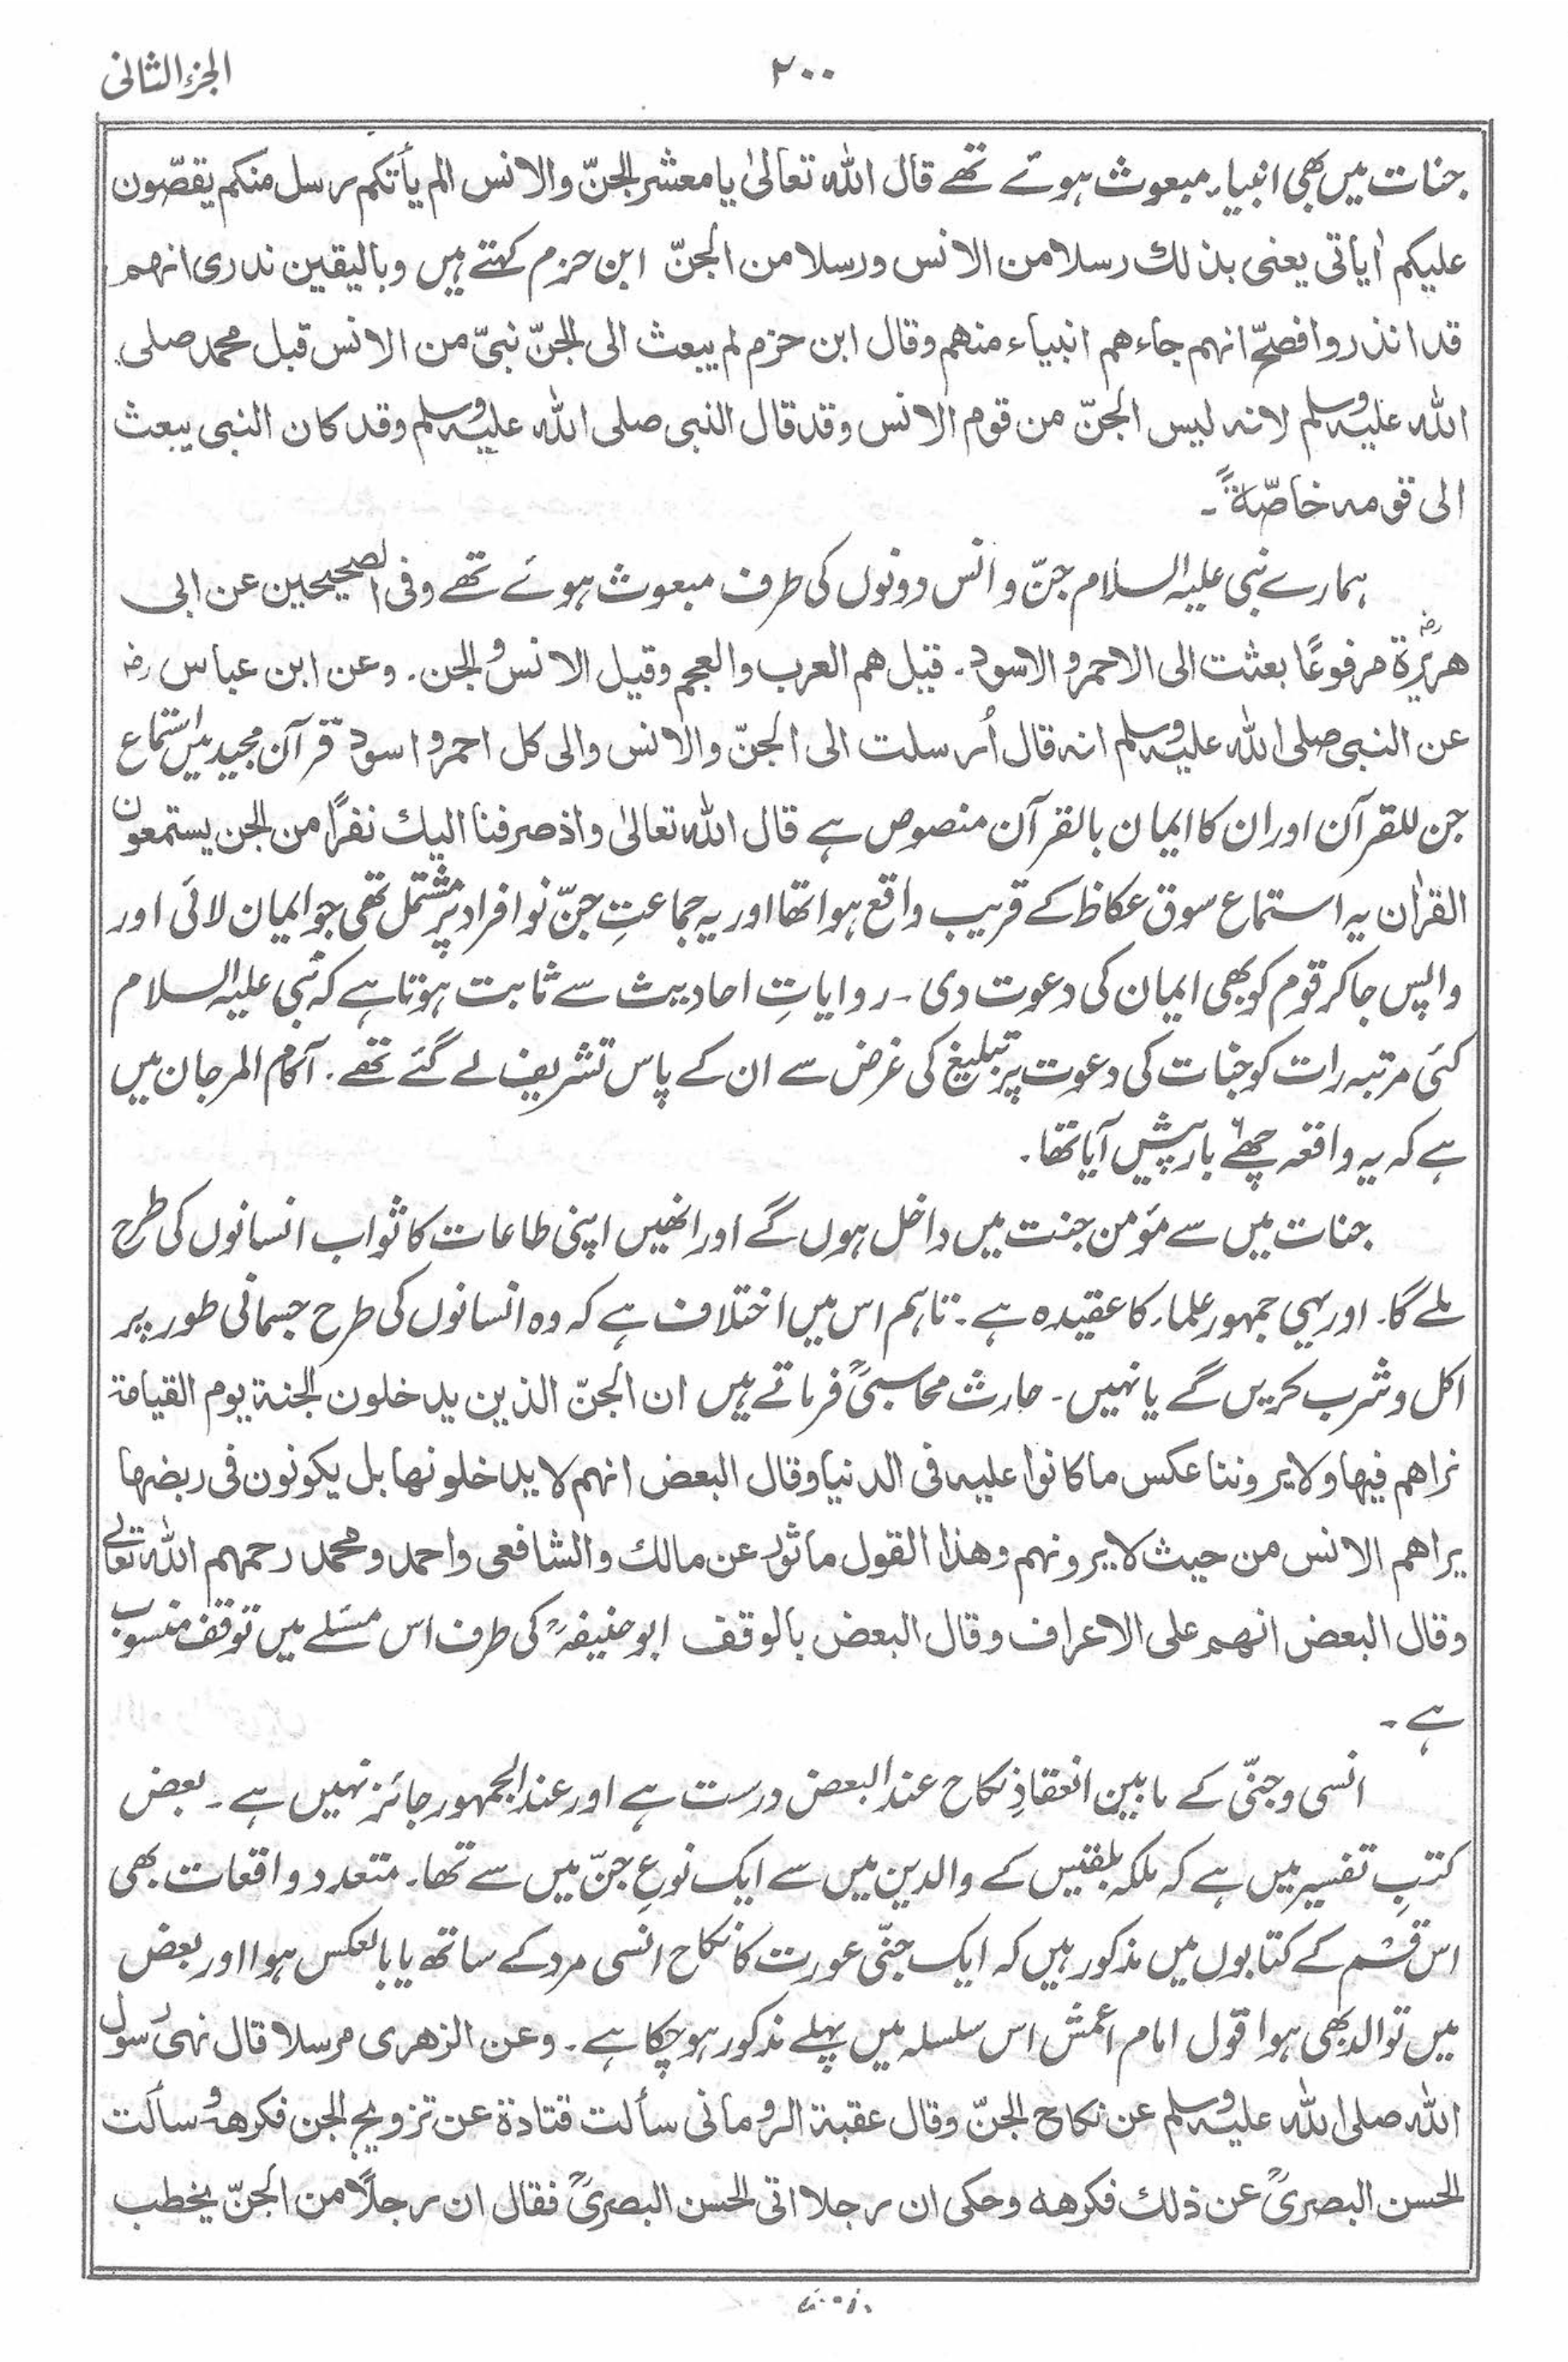 الجزء الثانی
۲۰۰
جنات میں بھی انبیاء مبعوث ہوئے تھے قال اللہ تعالیٰ یا معشر الجنّ والانس الم یأتکم رسل منکم یقصّون
علیکم اٰیاتی یعنی بذلك رسلا من الانس ورسلا من الجنّ ابن حزم کہتے ہیں وبالیقین ندری انہم
قد انذروا فصحّ انہم جاءهم انبیاء منهم وقال ابن حزم لم یبعث الی الجنّ نبیّ من الانس قبل محمد صلی
اللہ علیہ وسلم لانہ لیس الجنّ من قوم الانس وقد قال النبی صلی اللہ علیہ وسلم وقد کان النبی یبعث
الی قومہ خاصّۃً ۔
ہمارے نبی علیہ السلام جنّ و انس دونوں کی طرف مبعوث ہوئے تھے وفی الصحیحین عن ابی
ھریرۃ رض مرفوعًا بعثت الی الاحمر والاسود ۔ قیل هم العرب والعجم وقیل الانس والجن ۔ وعن ابن عباس رض
عن النبی صلی اللہ علیہ وسلم انہ قال اُرسلت الی الجنّ والانس والی کل احمر واسود قرآن مجید میں استماع
جن للقرآن اور ان کا ایمان بالقرآن منصوص ہے قال اللہ تعالیٰ واذ صرفنا الیك نفرًا من الجن یستمعون
القراٰن یہ استماع سوق عکاظ کے قریب واقع ہوا تھا اور یہ جماعتِ جنّ نو افراد پر مشتمل تھی جو ایمان لائی اور
واپس جا کر قوم کو بھی ایمان کی دعوت دی ۔ روایاتِ احادیث سے ثابت ہوتا ہے کہ نبی علیہ السلام
کئی مرتبہ رات کو جنات کی دعوت پر تبلیغ کی غرض سے ان کے پاس تشریف لے گئے تھے ۔ آکام المرجان میں
ہے کہ یہ واقعہ چھ۶ بار پیش آیا تھا ۔
جنات میں سے مؤمن جنت میں داخل ہوں گے اور انھیں اپنی طاعات کا ثواب انسانوں کی طرح
ملے گا ۔ اور یہی جمہور علماء کا عقیدہ ہے ۔ تاہم اس میں اختلاف ہے کہ وہ انسانوں کی طرح جسمانی طور پر
اکل و شرب کریں گے یا نہیں ۔ حارث محاسبیؒ فرماتے ہیں ان الجنّ الذین یدخلون الجنۃ یوم القیامۃ
نراهم فیها ولا یروننا عکس ما کانوا علیہ فی الدنیا وقال البعض انہم لا یدخلونها بل یکونون فی ربضها
یراهم الانس من حیث لا یرونهم وهذا القول ماثور عن مالك والشافعی واحمد ومحمد رحمهم اللہ تعالی
وقال البعض انهم علی الاعراف وقال البعض بالوقف ابو حنیفہؒ کی طرف اس مسئلے میں توقف منسوب
ہے ۔
انسی و جنّی کے مابین انعقادِ نکاح عند البعض درست ہے اور عند الجمہور جائز نہیں ہے ۔ بعض
کتبِ تفسیر میں ہے کہ ملکہ بلقیس کے والدین میں سے ایک نوعِ جنّ میں سے تھا ۔ متعدد واقعات بھی
اس قسم کے کتابوں میں مذکور ہیں کہ ایک جنّی عورت کا نکاح انسی مرد کے ساتھ یا بالعکس ہوا اور بعض
میں توالد بھی ہوا قول امام اعمش اس سلسلہ میں پہلے مذکور ہو چکا ہے ۔ وعن الزهری مرسلا قال نہی رسول
اللہ صلی اللہ علیہ وسلم عن نکاح الجنّ وقال عقبۃ الرومانی سألت قتادۃ عن تزویج الجن فکرهہ وسألت
الحسن البصریؒ عن ذلك فکرهہ وحکی ان رجلا اتی الحسن البصریؒ فقال ان رجلًا من الجنّ یخطب